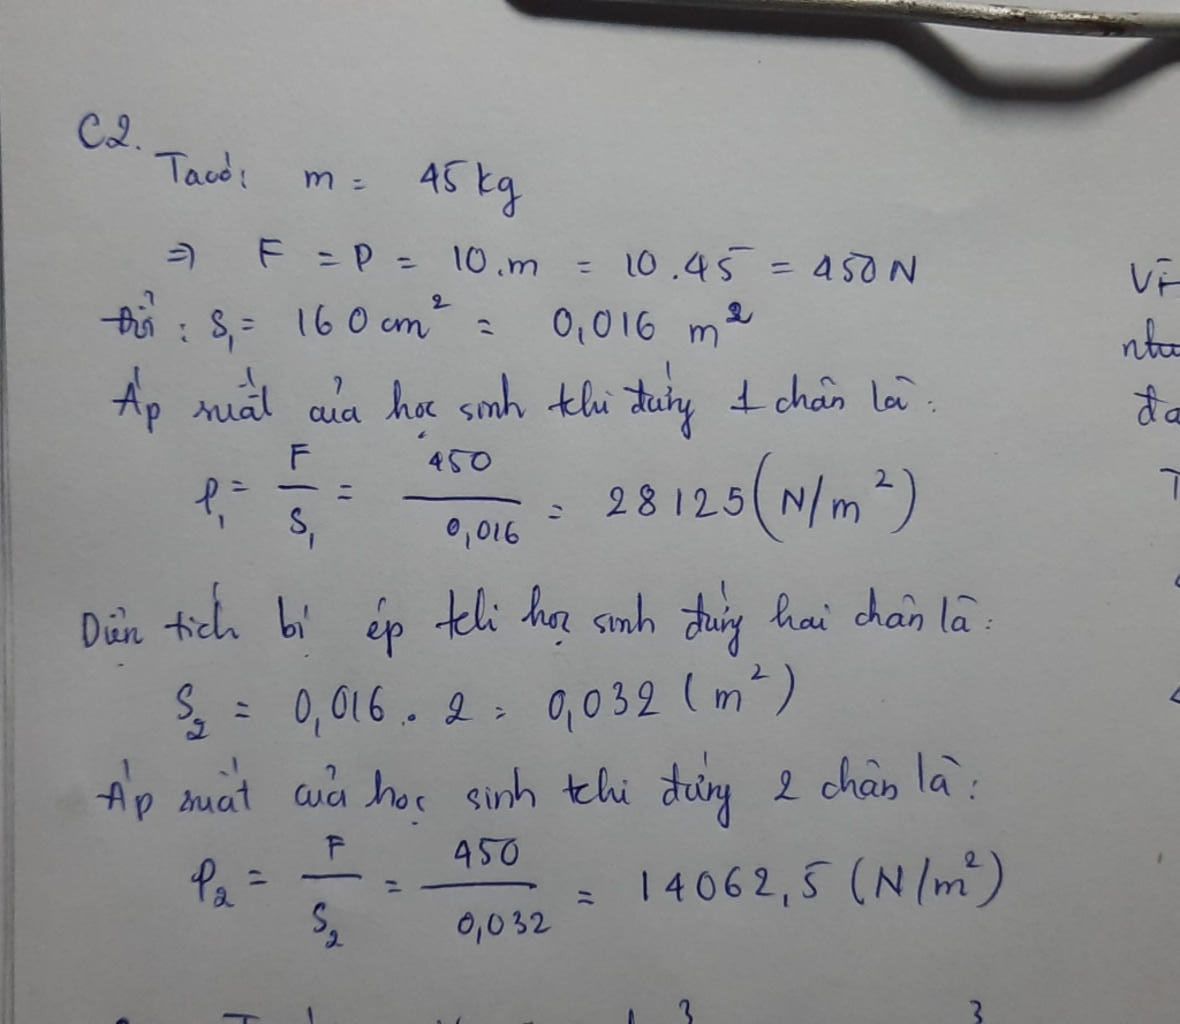 C2.
Ta có: m = 45 kg
⇒ F = P = 10.m = 10.45 = 450 N
Đổi : S₁ = 160 cm² = 0,016 m²
Áp suất của học sinh khi đứng 1 chân là:
p₁ = F/S₁ = 450/0,016 = 28125 (N/m²)
Diện tích bị ép khi học sinh đứng hai chân là:
S₂ = 0,016 . 2 = 0,032 (m²)
Áp suất của học sinh khi đứng 2 chân là:
p₂ = F/S₂ = 450/0,032 = 14062,5 (N/m²)